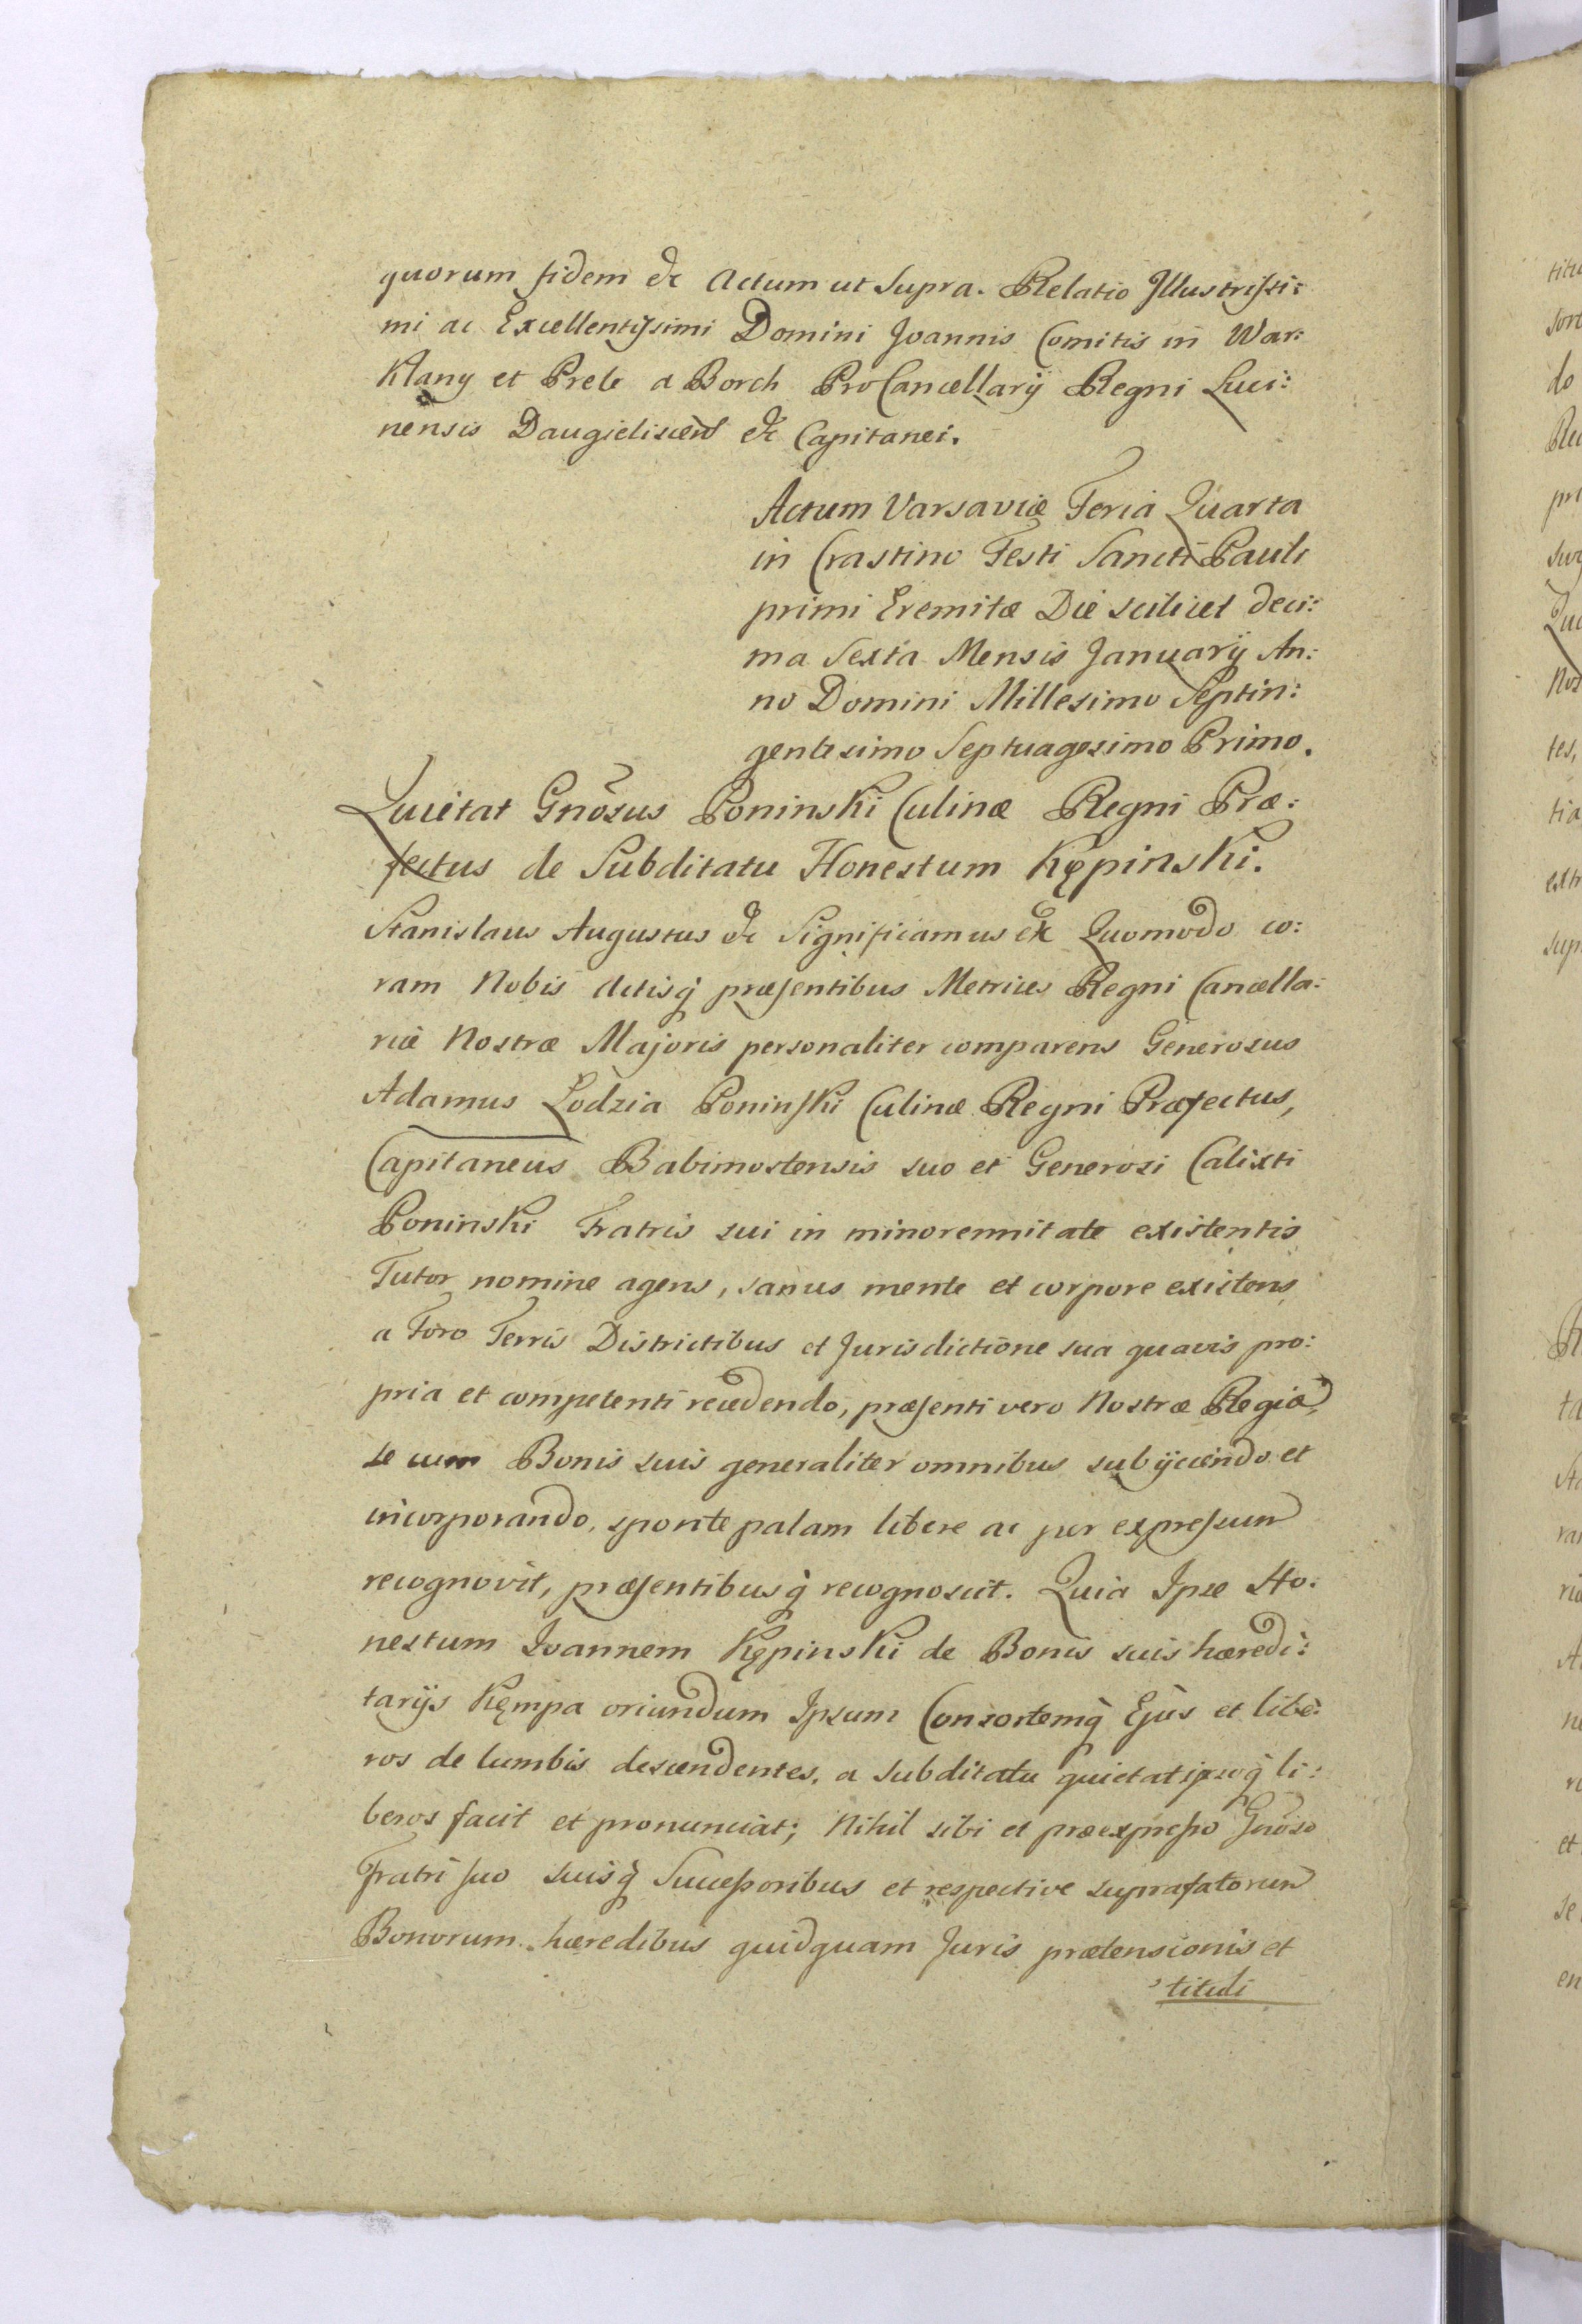 quorum fidem &c Actum ut Supra. Relatio Illustrissi:
mi ac Excellentissimi Domini Joannis Comitis in War:
Klany et Prele a Borch ProCancellarij Regni Luci:
nensis Daugieliscens &c Capitanei.
Actum Varsaviæ Feria Quarta
in Crastino Festi Sancti Pauli
primi Eremitæ Die scilicet deci:
ma Sexta Mensis Januarij An:
no Domini Millesimo Septin:
gentesimo Septuagesimo Primo.
Quietat Gnõsus Poninski Culinæ Regni Præ:
fectus de Subditatu Honestum Kępinski.
Stanislaus Augustus &c Significamus &c Quomodo co:
ram Nobis Actisq̀ præsentibus Metrices Regni Cancella:
riæ Nostræ Majoris personaliter comparens Generosus
Adamus Lodzia Poninski Culinæ Regni Præfectus,
Capitaneus Babimostensis suo et Generosi Calixti
Poninski Fratris sui in minorennitate existentis
Tutor nomine agens, sanus mente et corpore existens
a Foro Terris Districtibus et Jurisdictione sua quavis pro:
pria et competenti recedendo, præsenti vero Nostræ Regiæ,
se cum Bonis suis generaliter omnibus subijciendo et
incorporando, sponte palam libere ac per expressum
recognovit, præsentibusq̀ recognoscit. Quia Ipse Ho:
nestum Joannem Kępinski de Bonis suis hæredi:
tarijs Kęmpa oriundum Ipsum Consortemq̀ Ejus et libe:
ros de lumbis descendentes, a subditatu quietat ipsosq̀ li:
beros facit et pronunciat; Nihil sibi et præexpresso Gnõso
Fratri suo suisq̀ Successoribus et respective suprafatorum
Bonorum hæredibus quidquam Juris prætensionis et
tituli